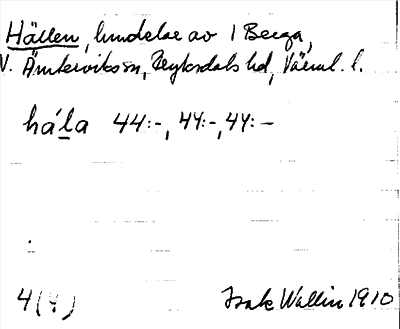 Hällen, lundelar av 1 Berga,
V. Ämterviks sn, Fryksdals hd, Värml. l.
håla 44:-, 44:-, 44:-
4(4)
Isak Wallin 1910